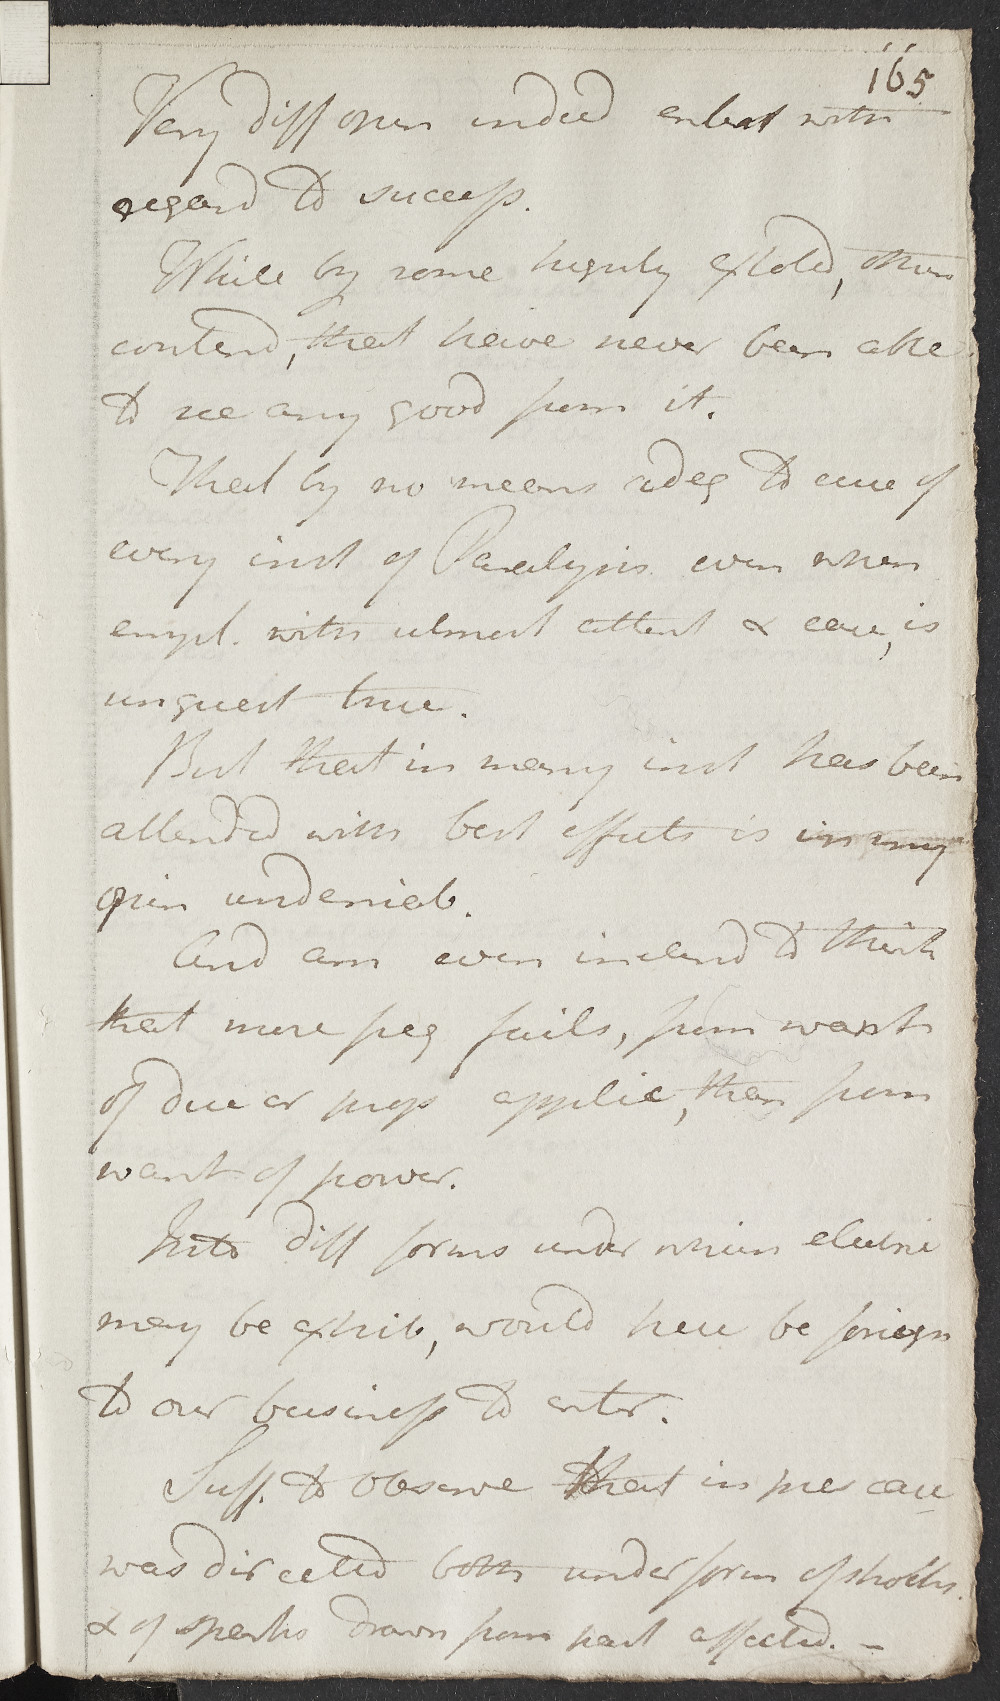 165
Very diff opin indeed entert with
regard to success.
While by some highly extoled, others
contend, that have never been able
to see any good from it.
That by no means adeq to cure of
every inst of Paralysis even when
empl. with utmost attent & care, is
unquest true.
But that in many inst has been
attended with best effects is in my
opin undeniab.
And am even inclend to think
that more freq fails, from want
of due or prop applic, than from
want of power.
Into diff forms under which electric
may be exhib, would here be foreign
to our business to enter.
Suff. to observe that in pres case
was directed both under form of shocks
& of sparks drawn from part affected. -